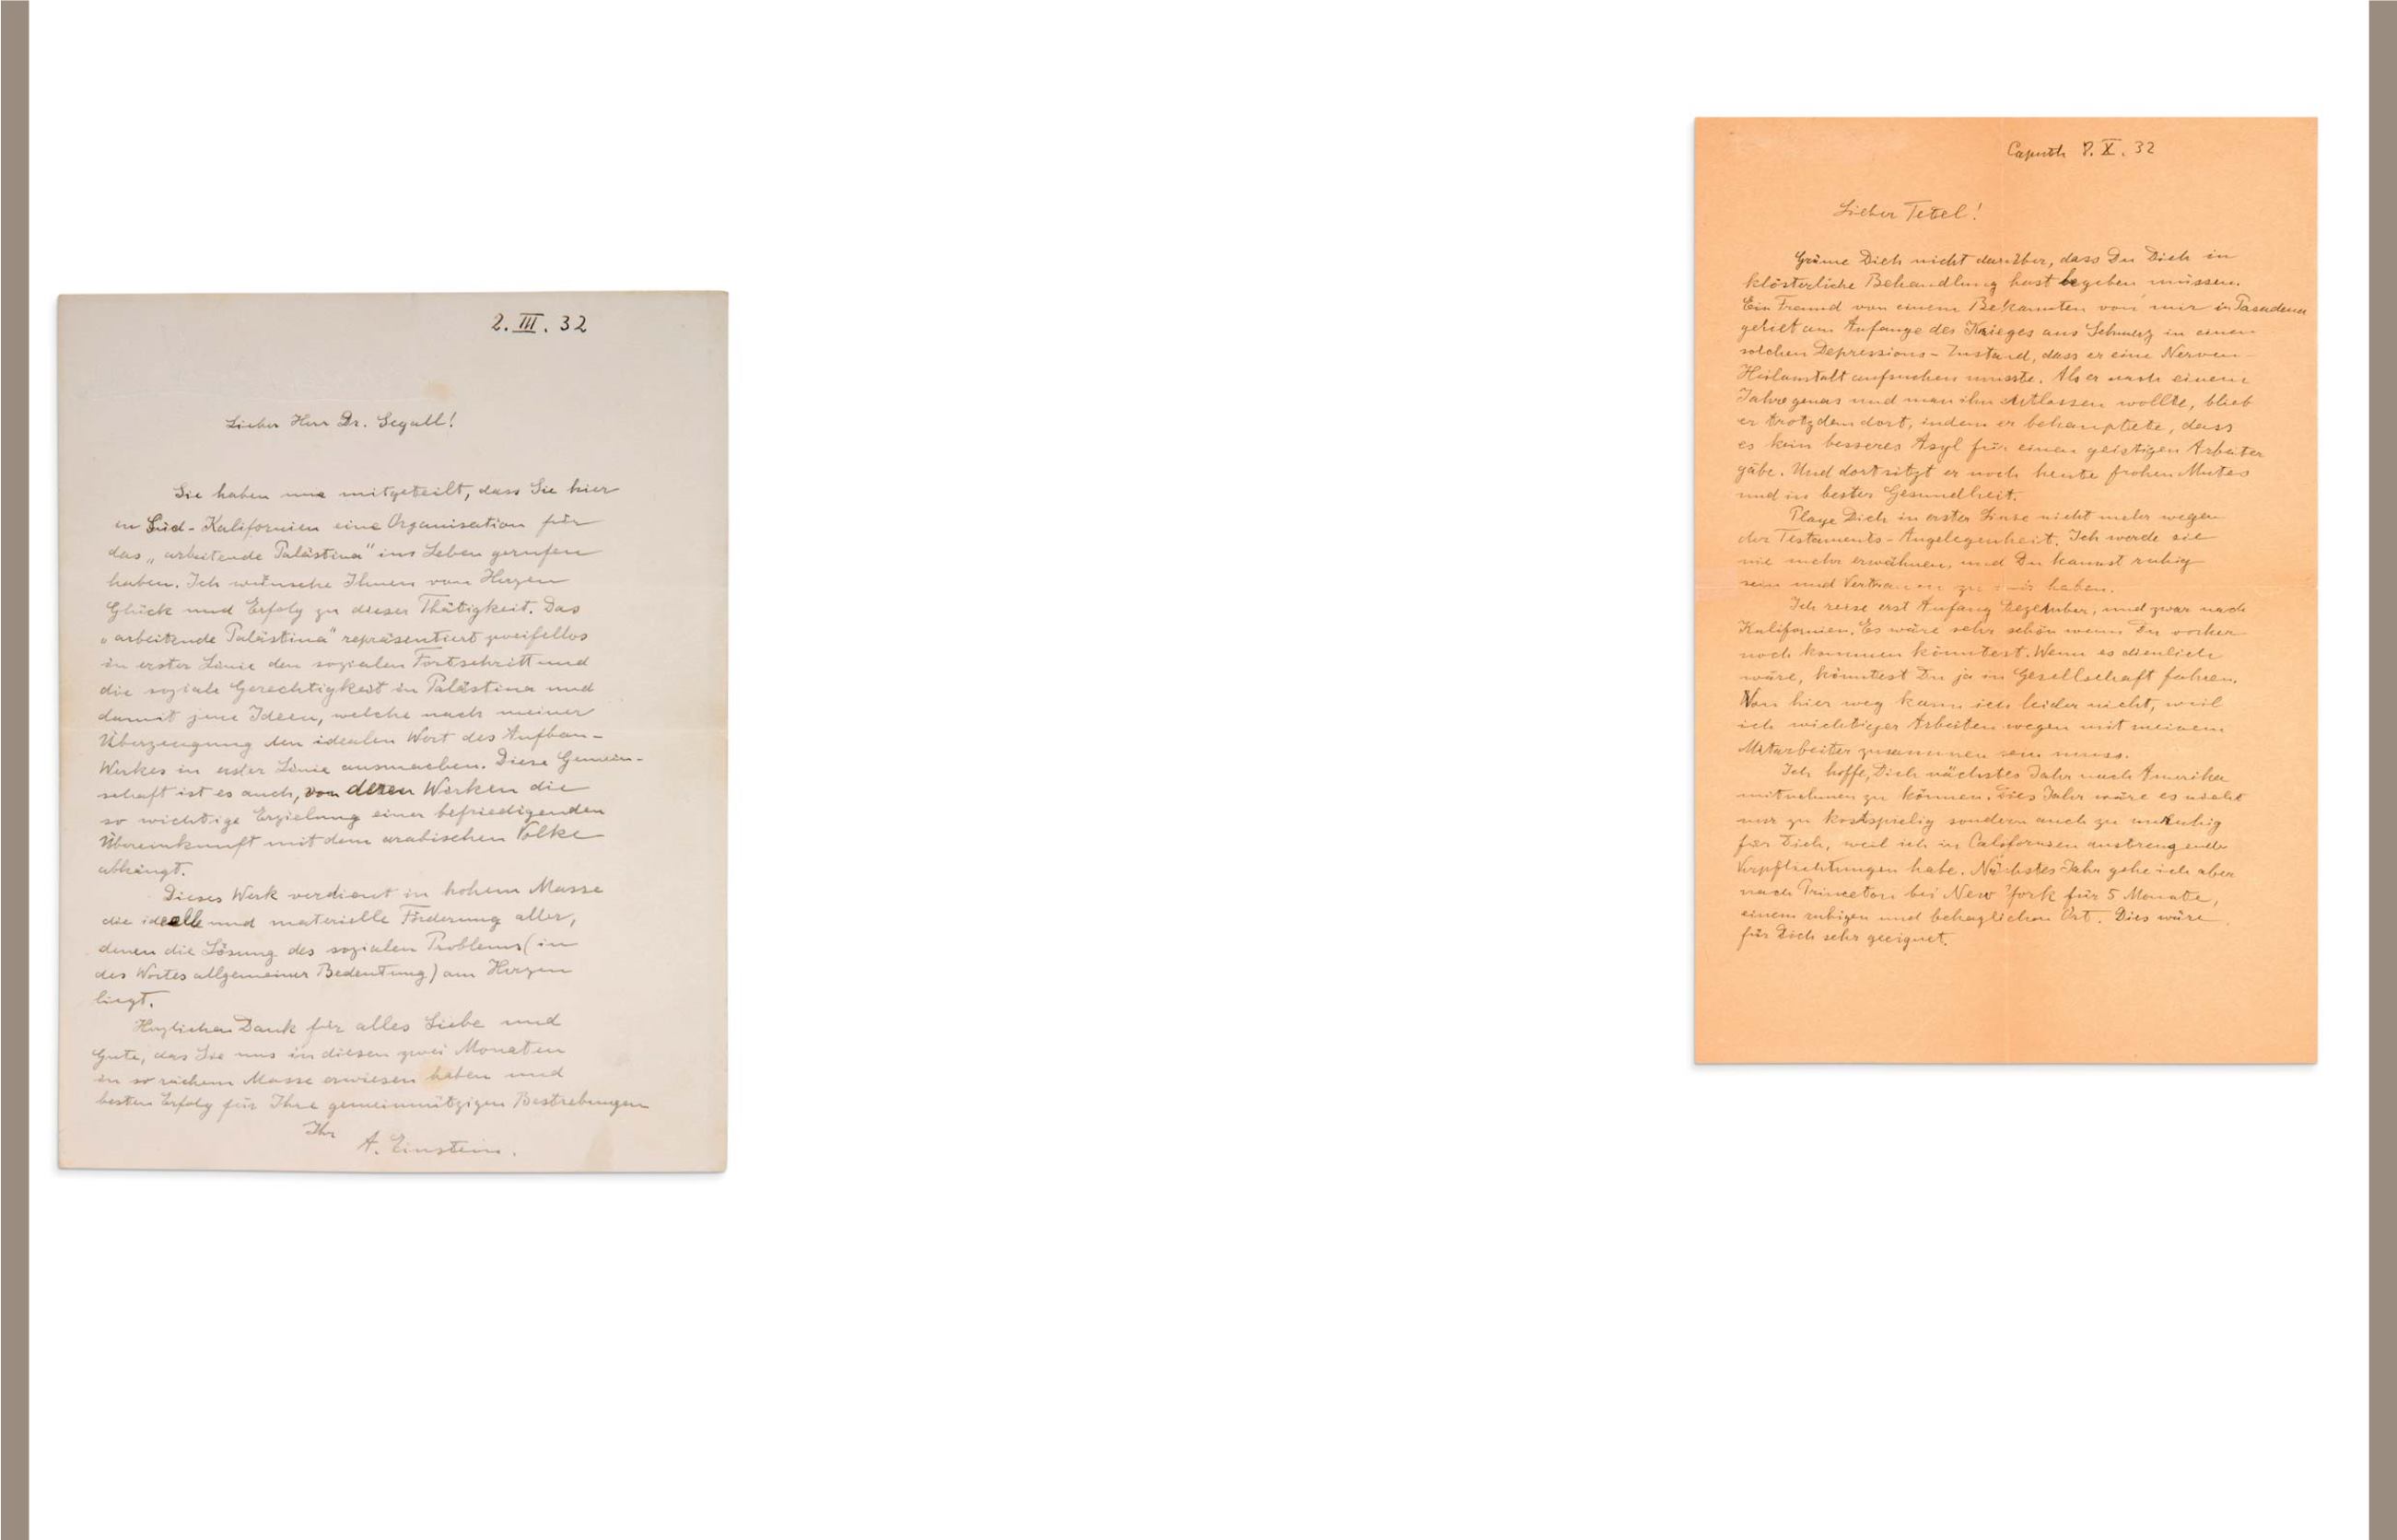 2. III. 32
Lieber Herr Dr. Segall!
Sie haben uns mitgeteilt, dass Sie hier
in Süd-Kalifornien eine Organisation für
das „arbeitende Palästina" ins Leben gerufen
haben. Ich wünsche Ihnen von Herzen
Glück und Erfolg zu dieser Thätigkeit. Das
„arbeitende Palästina" repräsentiert zweifellos
in erster Linie den sozialen Fortschritt und
die soziale Gerechtigkeit in Palästina und
damit jene Ideen, welche nach meiner
Überzeugung den idealen Wert des Aufbau-
Werkes in erster Linie ausmachen. Diese Gemein-
schaft ist es auch, von deren Wirken die
so wichtige Erzielung einer befriedigenden
Übereinkunft mit dem arabischen Volke
abhängt.
Dieses Werk verdient in hohem Masse
die ideelle und materielle Förderung aller,
denen die Lösung des sozialen Problems (in
des Wortes allgemeiner Bedeutung) am Herzen
liegt.
Herzlichen Dank für alles Liebe und
Gute, das Sie uns in diesen zwei Monaten
in so reichem Masse erwiesen haben und
besten Erfolg für Ihre gemeinnützigen Bestrebungen
Ihr
A. Einstein.
Caputh X. 32
Lieber Tetel!
Gräme Dich nicht darüber, dass Du Dich in
klösterliche Behandlung hast begeben müssen.
Ein Freund von einem Bekannten von mir in Pasadena
geriet am Anfange des Krieges aus Schmerz in einen
solchen Depressions-Zustand, dass er eine Nerven-
Heilanstalt aufsuchen musste. Als er nach einem
Jahre genas und man ihn entlassen wollte, blieb
er trotzdem dort, indem er behauptete, dass
es kein besseres Asyl für einen geistigen Arbeiter
gäbe. Und dort sitzt er noch heute frohen Mutes
und in bester Gesundheit.
Plage Dich in erster Linie nicht mehr wegen
der Testaments-Angelegenheit. Ich werde sie
nie mehr erwähnen, und Du kannst ruhig
sein und Vertrauen zu mir haben.
Ich reise erst Anfang Dezember, und zwar nach
Kalifornien. Es wäre sehr schön wenn Du vorher
noch kommen könntest. Wenn es dienlich
wäre, könntest Du ja in Gesellschaft fahren.
Von hier weg kann ich leider nicht, weil
ich wichtiger Arbeiten wegen mit meinem
Mitarbeiter zusammen sein muss.
Ich hoffe, Dich nächstes Jahr nach Amerika
mitnehmen zu können. Dies Jahr wäre es nicht
nur zu kostspielig sondern auch zu unruhig
für Dich, weil ich in Californien anstrengende
Verpflichtungen habe. Nächstes Jahr gehe ich aber
nach Princeton bei New York für 5 Monate,
einem ruhigen und behaglichen Ort. Dies wäre
für Dich sehr geeignet.